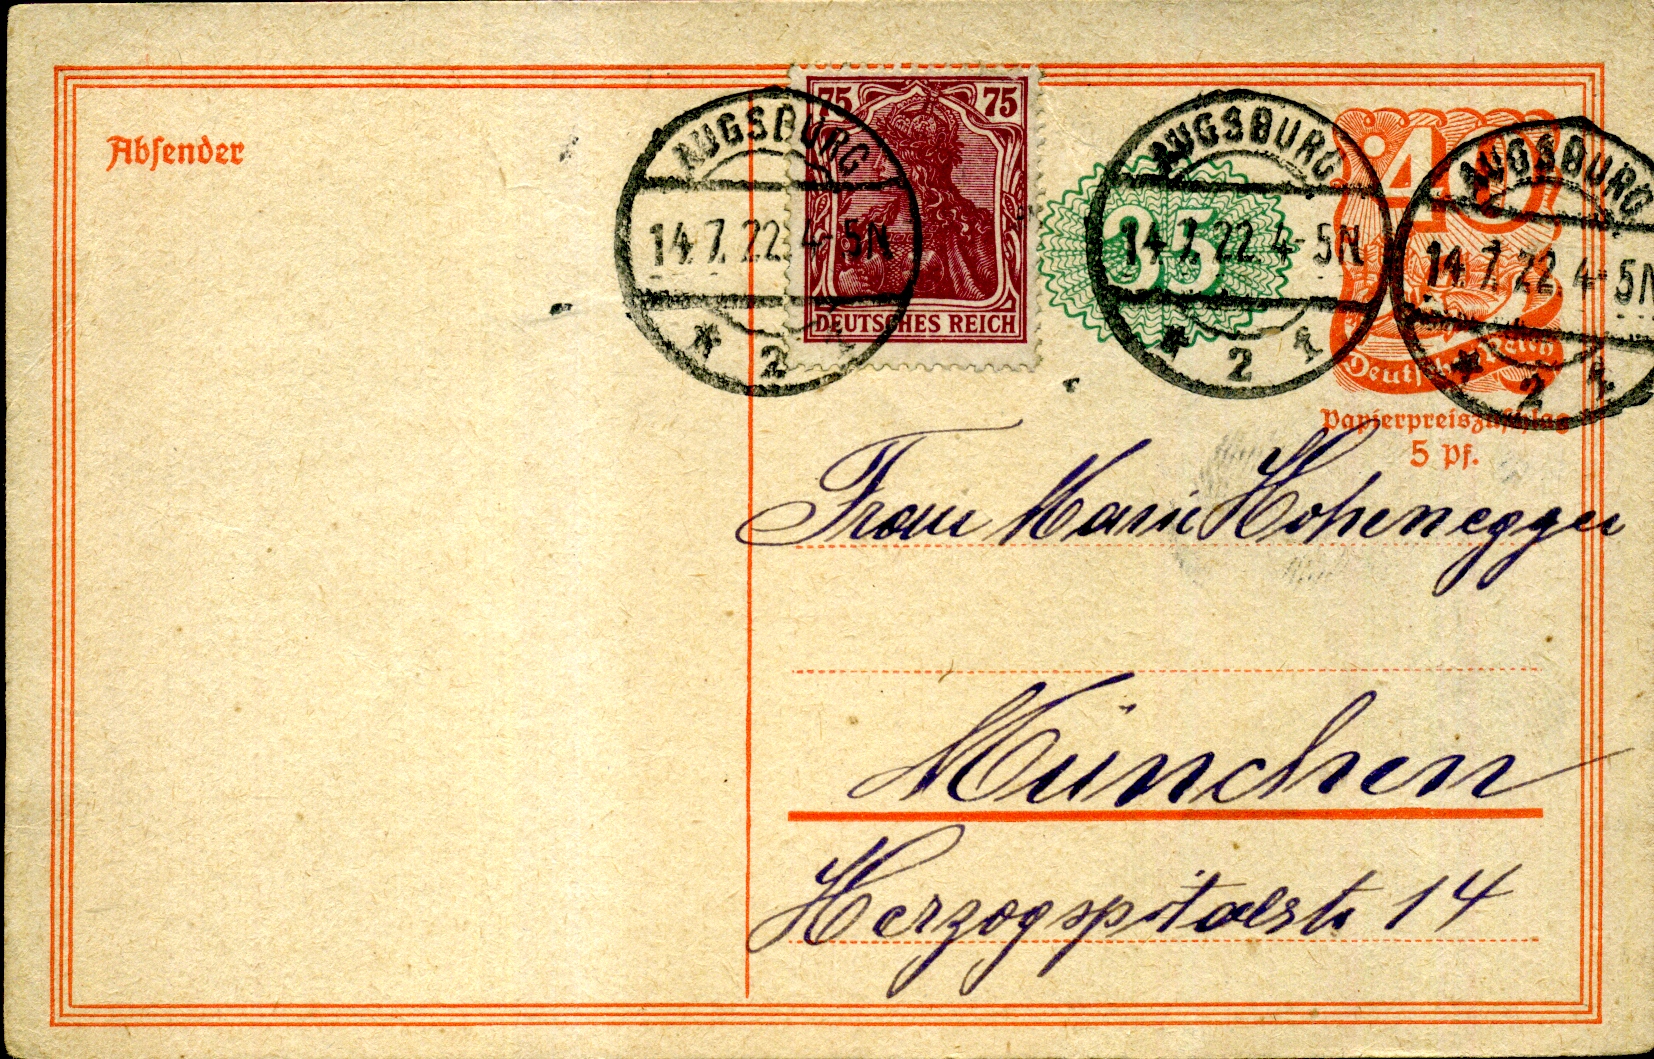 Absender
75 75
DEUTSCHES REICH
AUGSBURG
14.7.22. 4-5N
* 2 
35
AUGSBURG
14.7.22. 4-5N
* 2 
40
Deutsches Reich
AUGSBURG
14.7.22. 4-5N
* 2 
Papierpreiszuschlag
5 Pf.
Frau Marie Hohenegger
München
Herzogspitalstr 14